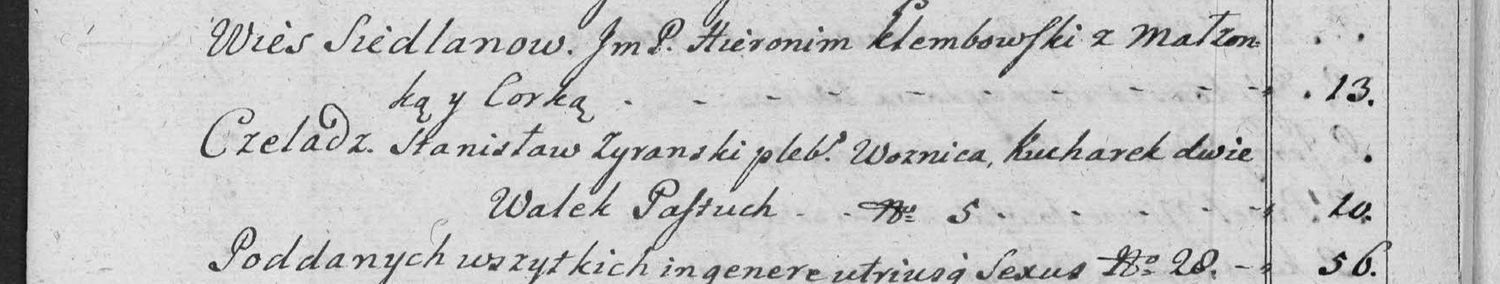 Wies Siedlanow. Jm P. Hieronim Klembowski z Małżon- . .
ką y Corką . - - - - - - - - - . 13.
Czeladz. Stanisław Zyranski pleb.s Woznica, Kucharek dwie .
Walek Pastuch - - No 5 - - - - - 10.
Poddanych wszytkich in genere utriusq Sexus No 28. - 56.